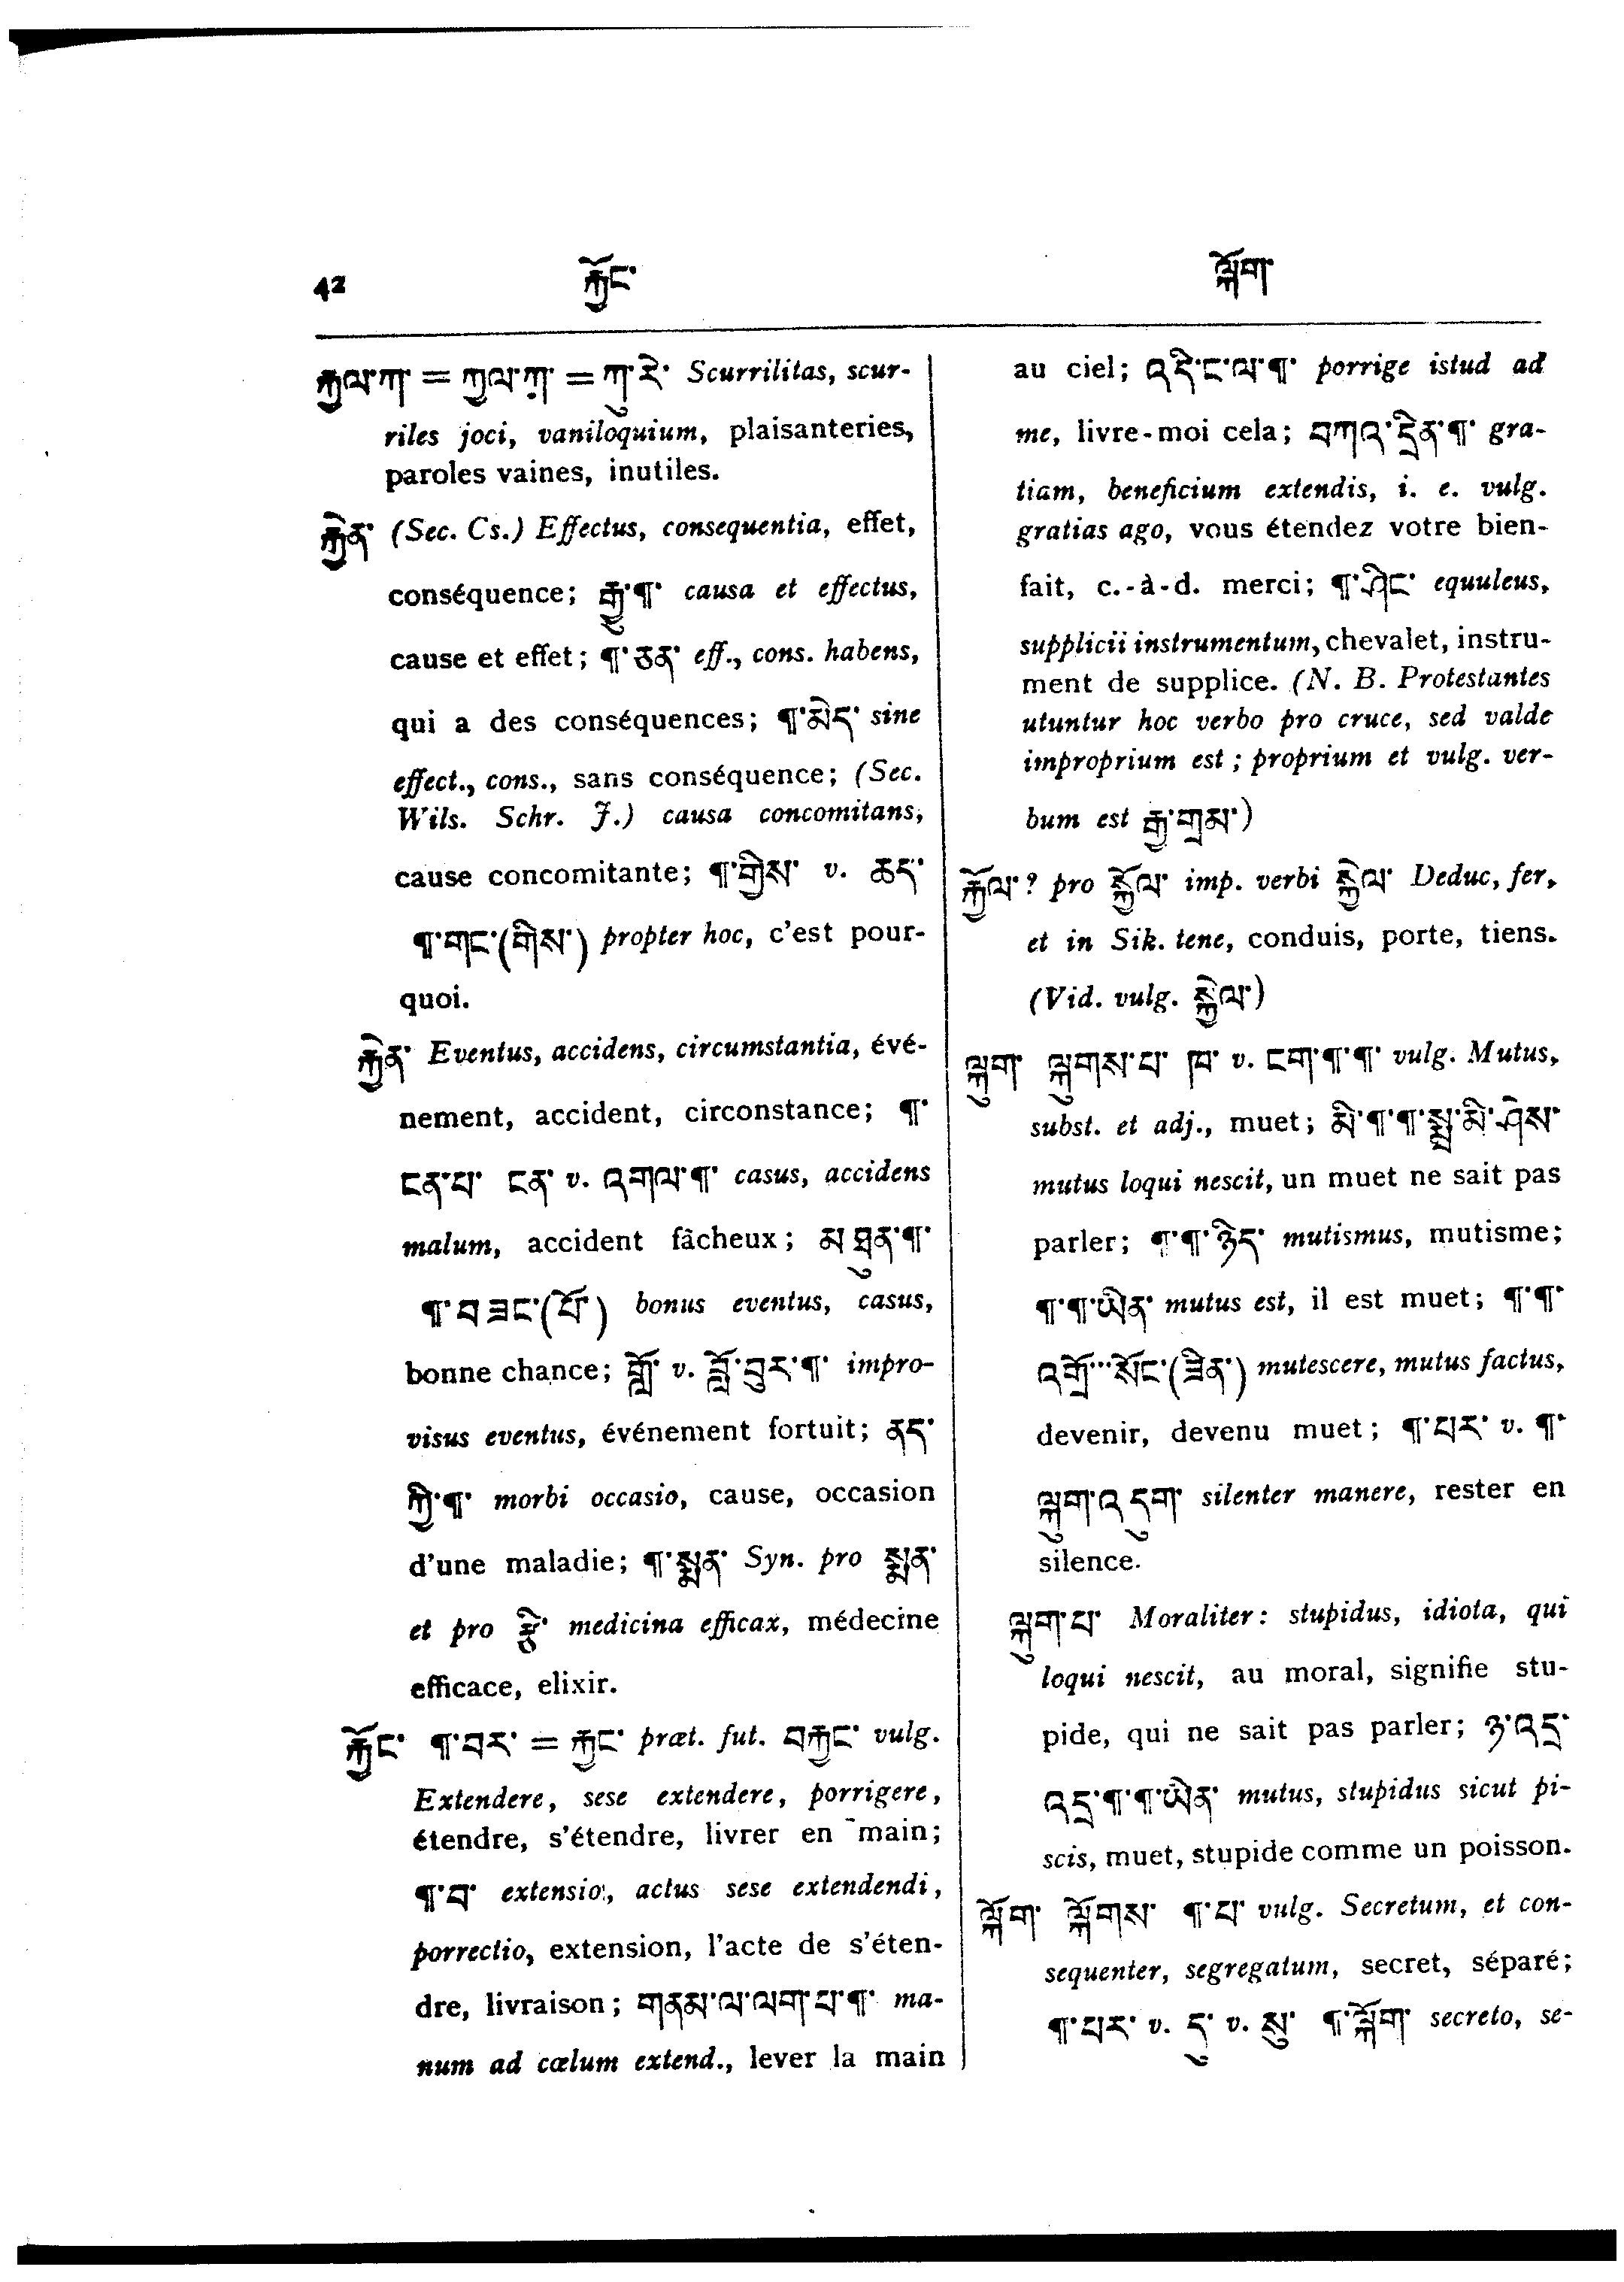 42 རྐྱོང་ ལྐོག་
རྐྱལ་ཀ་ = ཀྱལ་ཀ་ = ཀུ་རེ་ Scurrilitas, scur-
riles joci, vaniloquium, plaisanteries,
paroles vaines, inutiles.
རྐྱེན་ (Sec. Cs.) Effectus, consequentia, effet,
conséquence; རྒྱུ་༌¶་ causa et effectus,
cause et effet; ¶་ཅན་ eff., cons. habens,
qui a des conséquences; ¶་མེད་ sine
effect., cons., sans conséquence; (Sec.
Wils. Schr. J.) causa concomitans,
cause concomitante; ¶་གྱིས་ v. ཆད་
¶་གང་(གིས་) propter hoc, c'est pour-
quoi.
རྐྱེན་ Eventus, accidens, circumstantia, évé-
nement, accident, circonstance; ¶་
ངན་པ་ ངན་ v. འགལ་¶་ casus, accidens
malum, accident fâcheux; མ ཐུན་¶་
¶་བ ཟང་(པོ་) bonus eventus, casus,
bonne chance; གློ་ v. བློ་བུར་¶་ impro-
visus eventus, événement fortuit; ནད་
ཀྱི་¶་ morbi occasio, cause, occasion
d'une maladie; ¶་སྨན་ Syn. pro སྨན་
et pro རྩི་ medicina efficax, médecine
efficace, elixir.
རྐྱོང་ ¶་བར་ = རྐྱང་ præt. fut. བརྐྱང་ vulg.
Extendere, sese extendere, porrigere,
étendre, s'étendre, livrer en main;
¶་བ་ extensio, actus sese extendendi,
porrectio, extension, l'acte de s'éten-
dre, livraison; གནམ་ལ་ལག་པ་¶་ ma-
num ad cœlum extend., lever la main
au ciel; འདི་ང་ལ་¶་ porrige istud ad
me, livre-moi cela; བཀའ་དྲིན་¶་ gra-
tiam, beneficium extendis, i. e. vulg.
gratias ago, vous étendez votre bien-
fait, c.-à-d. merci; ¶་ཤིང་ equuleus,
supplicii instrumentum, chevalet, instru-
ment de supplice. (N. B. Protestantes
utuntur hoc verbo pro cruce, sed valde
improprium est; proprium et vulg. ver-
bum est རྒྱ་གྲམ་)
རྐྱོལ་? pro སྐྱོལ་ imp. verbi སྐྱེལ་ Deduc, fer,
et in Sik. tene, conduis, porte, tiens.
(Vid. vulg. སྐྱེལ་)
ལྐུག་ ལྐུགས་པ་ ཁ་ v. ངག་¶་¶་ vulg. Mutus,
subst. et adj., muet; མི་¶་¶་སྨྲ་མི་ཤེས་
mutus loqui nescit, un muet ne sait pas
parler; ¶་¶་ཉིད་ mutismus, mutisme;
¶་¶་ཡིན་ mutus est, il est muet; ¶་¶་
འགྲོ་··སོང་(ཟིན་) mutescere, mutus factus,
devenir, devenu muet; ¶་པར་ v. ¶་
ལྐུག་འདུག་ silenter manere, rester en
silence.
ལྐུག་པ་ Moraliter: stupidus, idiota, qui
loqui nescit, au moral, signifie stu-
pide, qui ne sait pas parler; ཉ་འདྲ་
འདྲ་¶་¶་ཡིན་ mutus, stupidus sicut pi-
scis, muet, stupide comme un poisson.
ལྐོག་ ལྐོགས་ ¶་པ་ vulg. Secretum, et con-
sequenter, segregatum, secret, séparé;
¶་པར་ v. དུ་ v. སུ་ ¶་ལྐོག་ secreto, se-